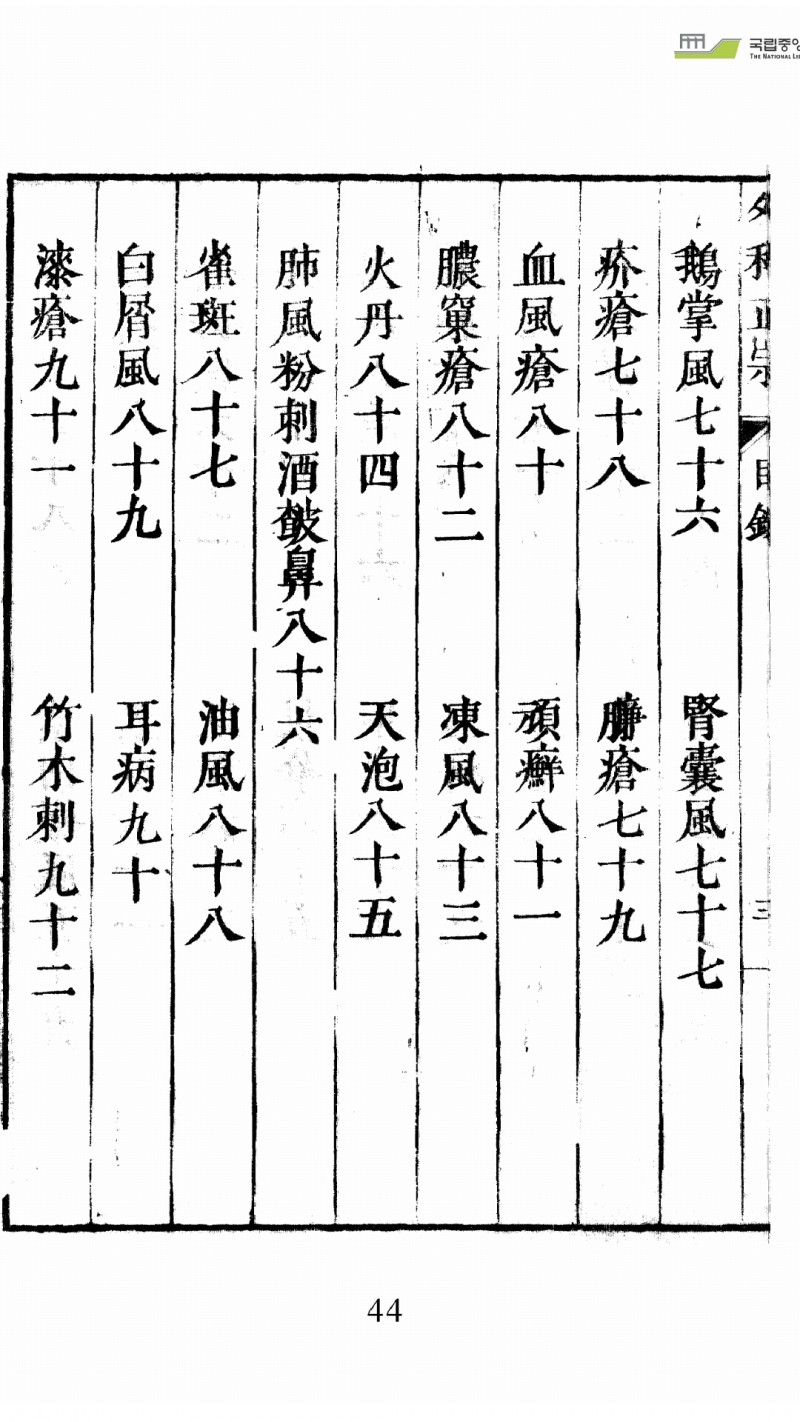 국립중앙
THE NATIONAL LI
外科正宗 目錄 三
鵝掌風七十六 腎囊風七十七
疥瘡七十八 臁瘡七十九
血風瘡八十 頑癬八十一
膿窠瘡八十二 凍風八十三
火丹八十四 天泡八十五
肺風粉刺酒皶鼻八十六
雀斑八十七 油風八十八
白屑風八十九 耳病九十
漆瘡九十一 竹木刺九十二
44